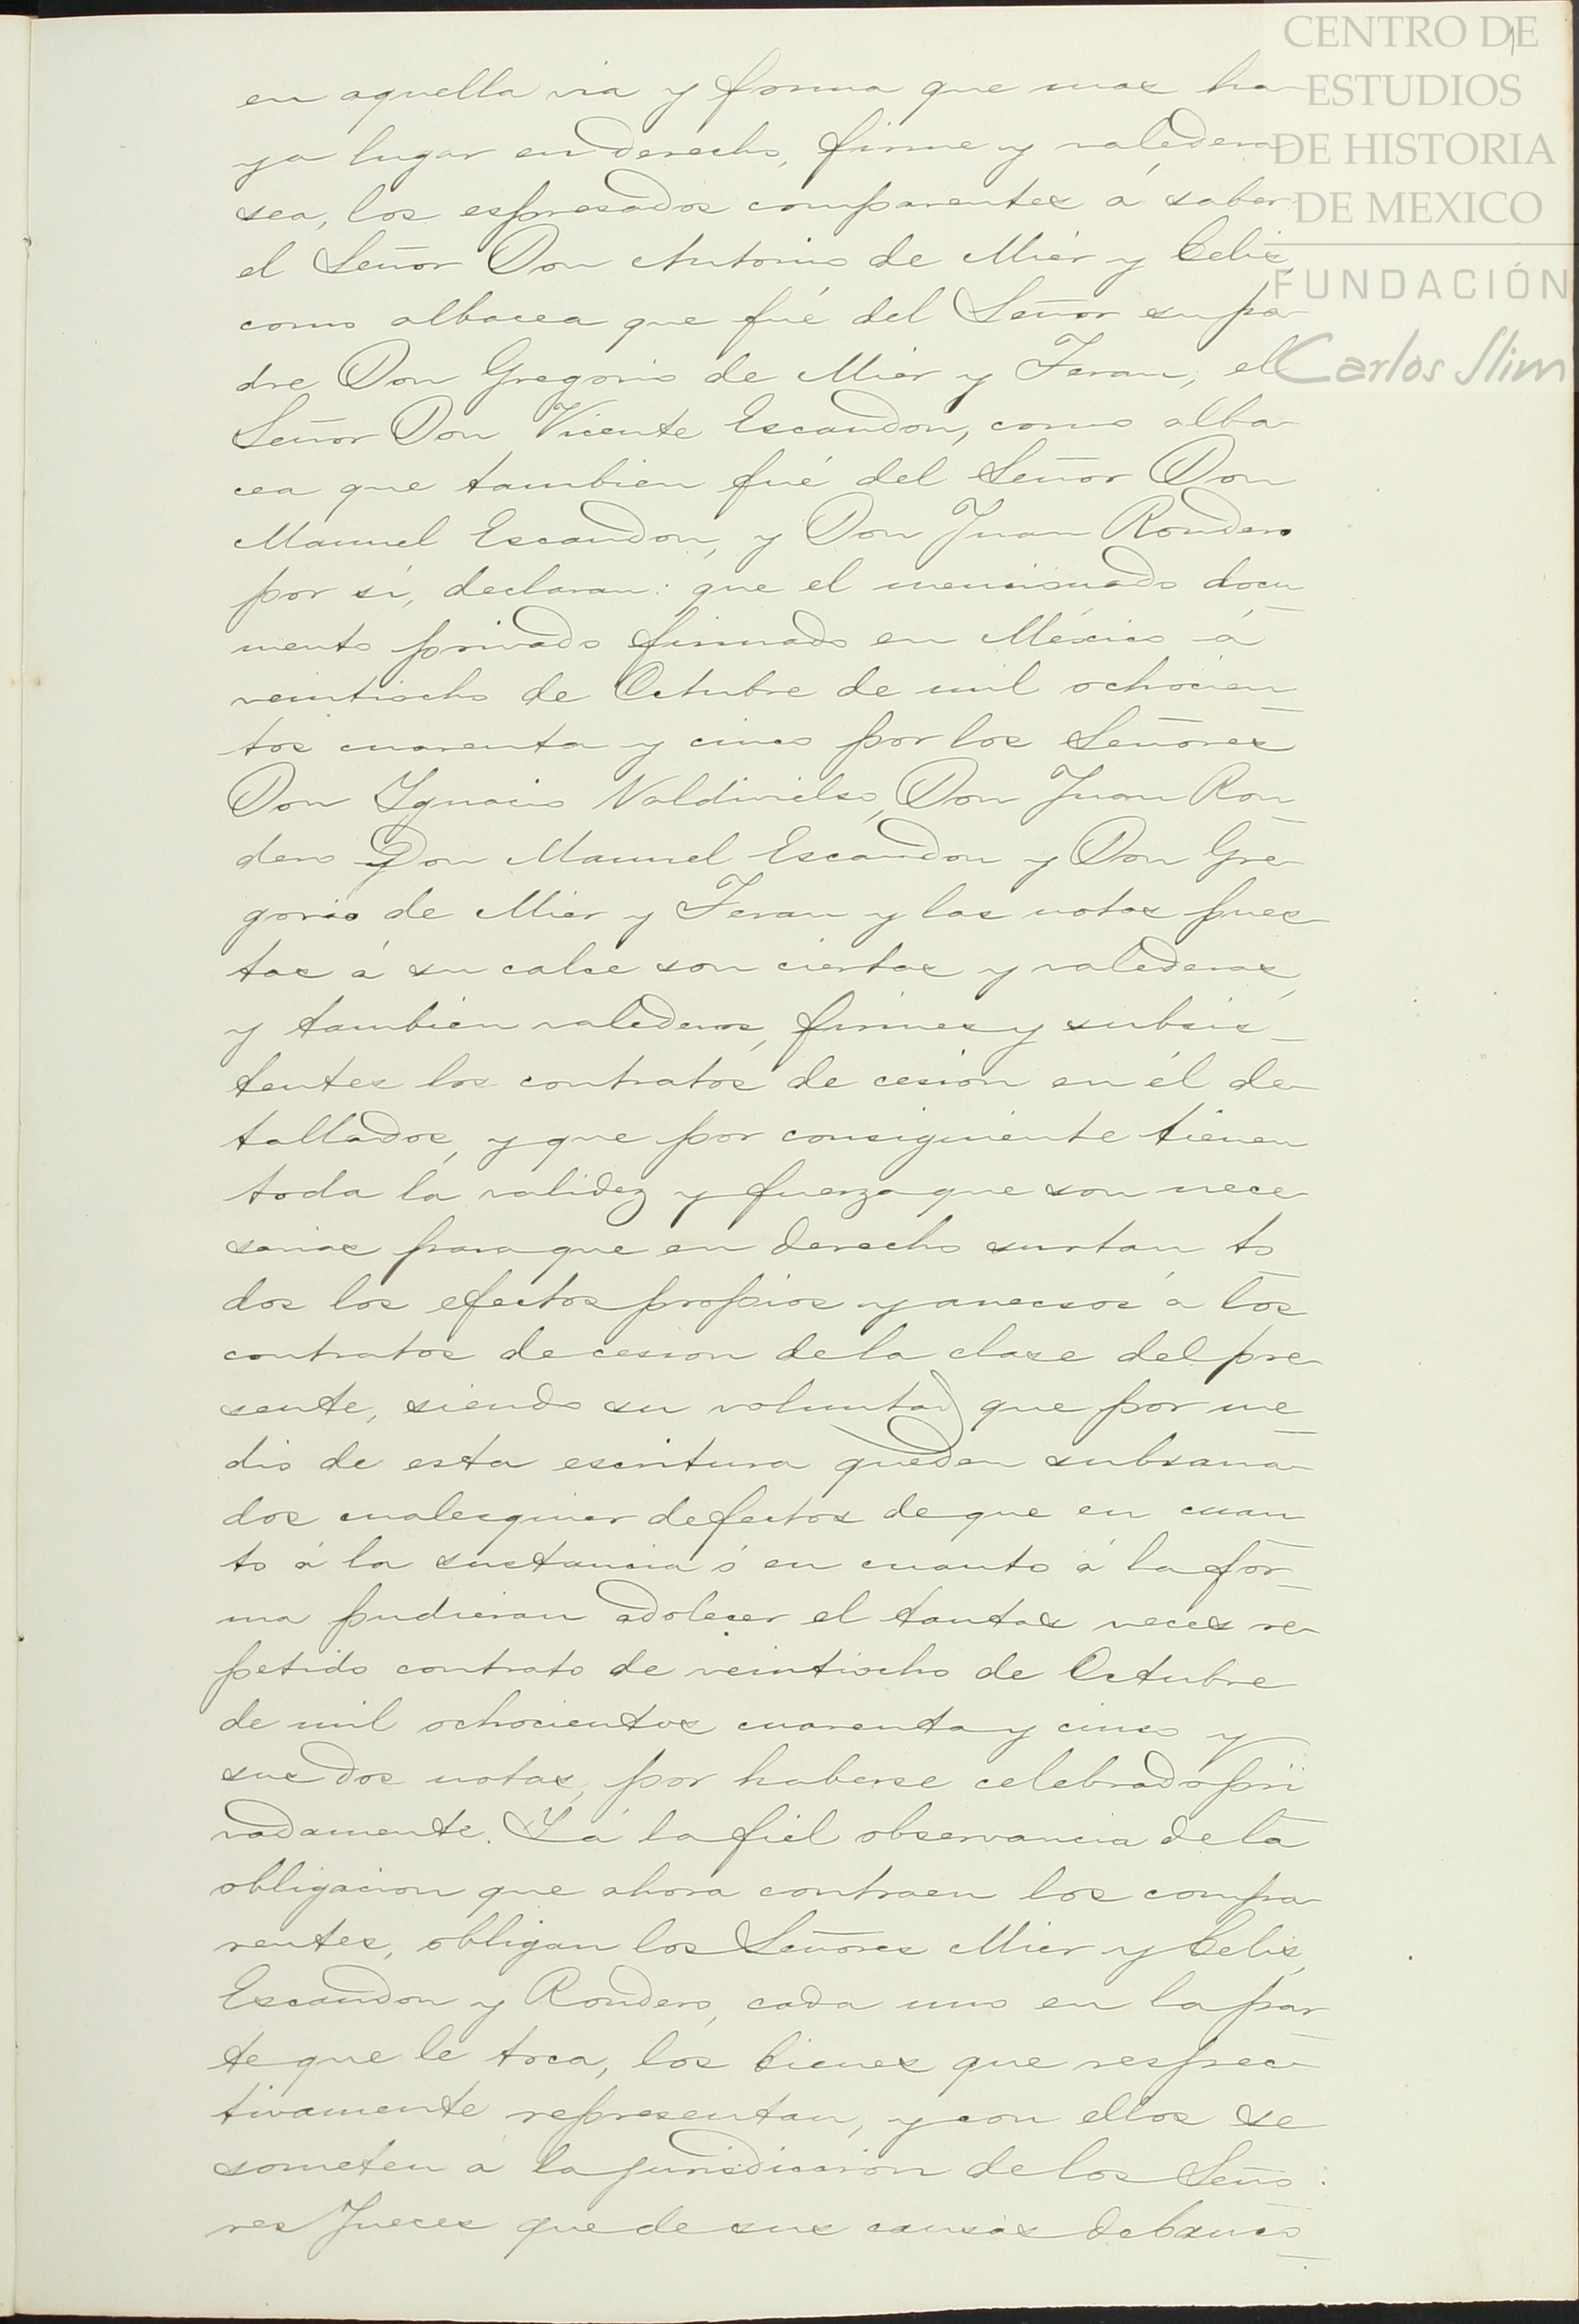 CENTRO DE
ESTUDIOS
DE HISTORIA
DE MEXICO
FUNDACIÓN
Carlos Slim
en aquella via y forma que mas ha
ya lugar en derecho, firme y valedera
sea, los espresados comparentes á saber
el Señor Don Antonio de Mier y Celis,
como albacea que fué del Señor su pa-
dre Don Gregorio de Mier y Teran; el
Señor Don Vicente Escandon, como alba-
cea que tambien fué del Señor Don
Manuel Escandon, y Don Juan Rondero
por sí, declaran: que el mencionado docu
mento privado firmado en México á
veintiocho de Octubre de mil ochocien
tos cuarenta y cinco por los Señores
Don Ygnacio Valdivielso, Don Juan Ron
dero Don Manuel Escandon y Don Gre-
gorio de Mier y Teran y las notas pues-
tas á su calce son ciertas y valederas,
y tambien valederos, firmes y subsis-
tentes los contratos de cesion en él de-
tallados, y que por consiguiente tienen
toda la validez y fuerza que son nece-
sarias para que en derecho surtan to
dos los efectos propios y anecsos á los
contratos de cesion de la clase del pre-
sente, siendo su voluntad que por me
dio de esta escritura queden subsana-
dos cualesquier defectos de que en cuan
to á la sustancia ó en cuanto á la for-
ma pudieran adolecer el tantas veces re-
petido contrato de veintiocho de Octubre
de mil ochocientos cuarenta y cinco y
sus dos notas, por haberse celebrado pri
vadamente. Y á la fiel observancia de la
obligacion que ahora contraen los compa-
rentes, obligan los Señores Mier y Celis,
Escandon y Rondero, cada uno en la par
te que le toca, los bienes que respec-
tivamente representan, y con ellos se
someten á la jurisdiccion de los Seño
res Jueces que de sus causas deban co